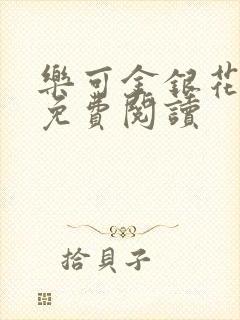 樂可金銀花
免費閱讀
拾貝子